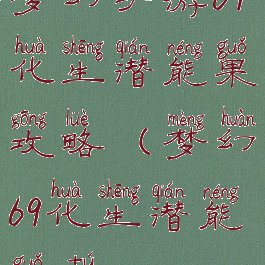 huà shēng qián néng guǒ
化生潜能果
gōng lüè mèng huàn
攻略(梦幻
huà shēng qián néng
69化生潜能